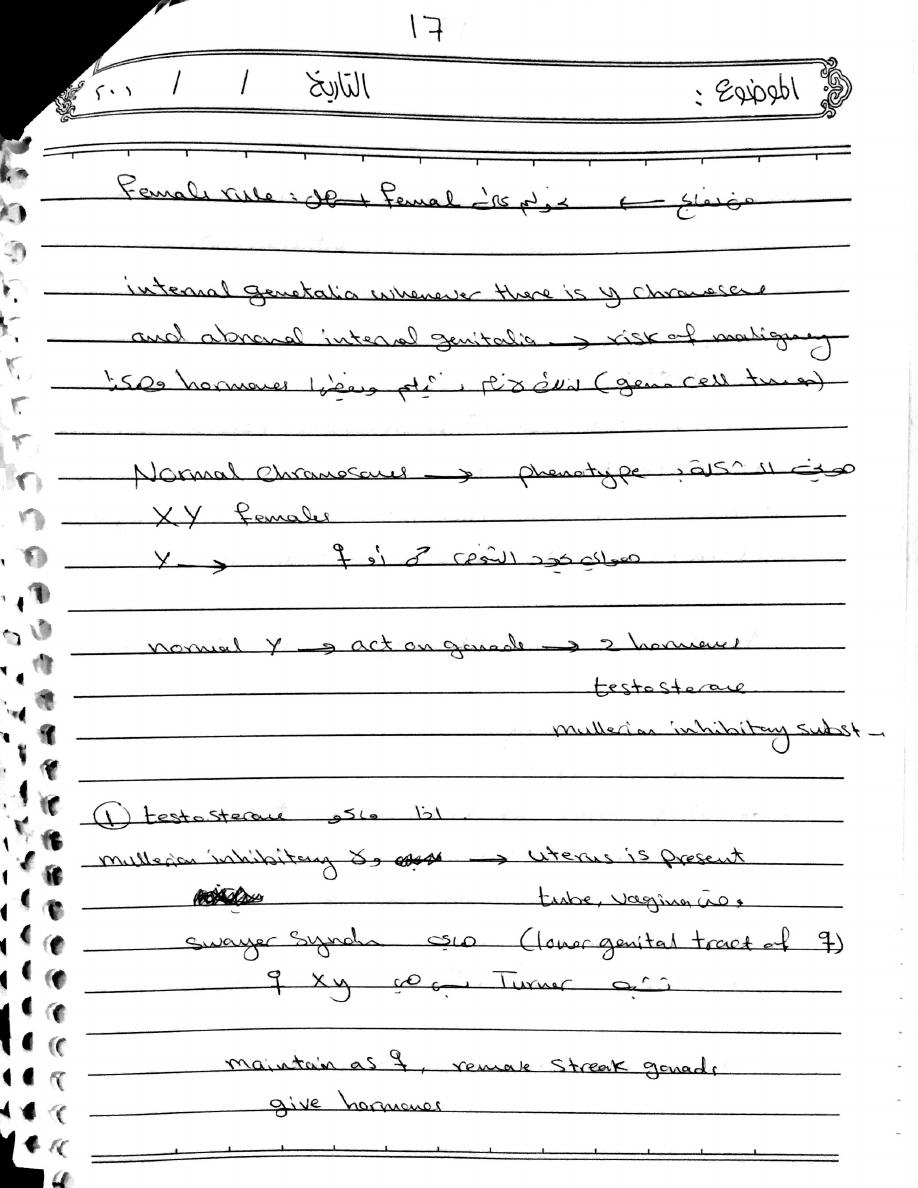 17
الموضوع : التاريخ / / ٢٠٠١
Female rule : femal
internal genetalia whenever there is y chromosome
and abnormal internal genitalia → risk of malignancy
hormones (germ cell tumor)
Normal chromosomes → phenotype
XY females
Y → ♂ أو ♀
normal Y → act on gonads → 2 hormones
testosterone
mullerian inhibitory subst
① testosterone اذا ماكو
mullerian inhibitory ولا → uterus is present
tube, vagina
swayer syndr (lower genital tract of ♀)
تشبه Turner بس هي ♀ xy
maintain as ♀, remove streak gonads
give hormones